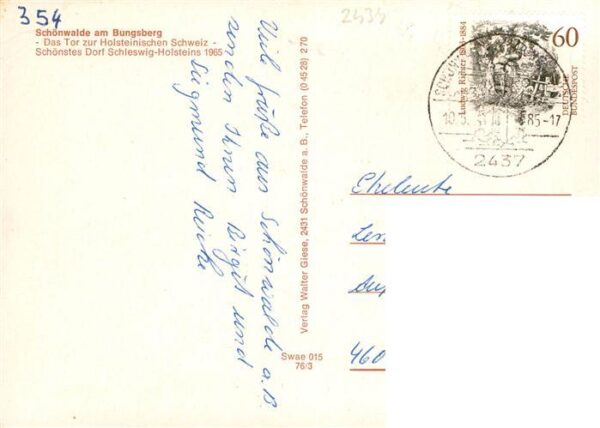 354
2434
Schönwalde am Bungsberg
- Das Tor zur Holsteinischen Schweiz -
Schönstes Dorf Schleswig-Holsteins 1965
Viele Grüße aus Schönwalde a.B.
senden Ihnen Birgit und
Siegmund
Verlag Walter Giese, 2431 Schönwalde a. B., Telefon (0 45 28) 2 70
Swae 015
76/3
Ludwig Richter 1803-1884
60
DEUTSCHE
BUNDESPOST
85-17
2437
Eheleute
460